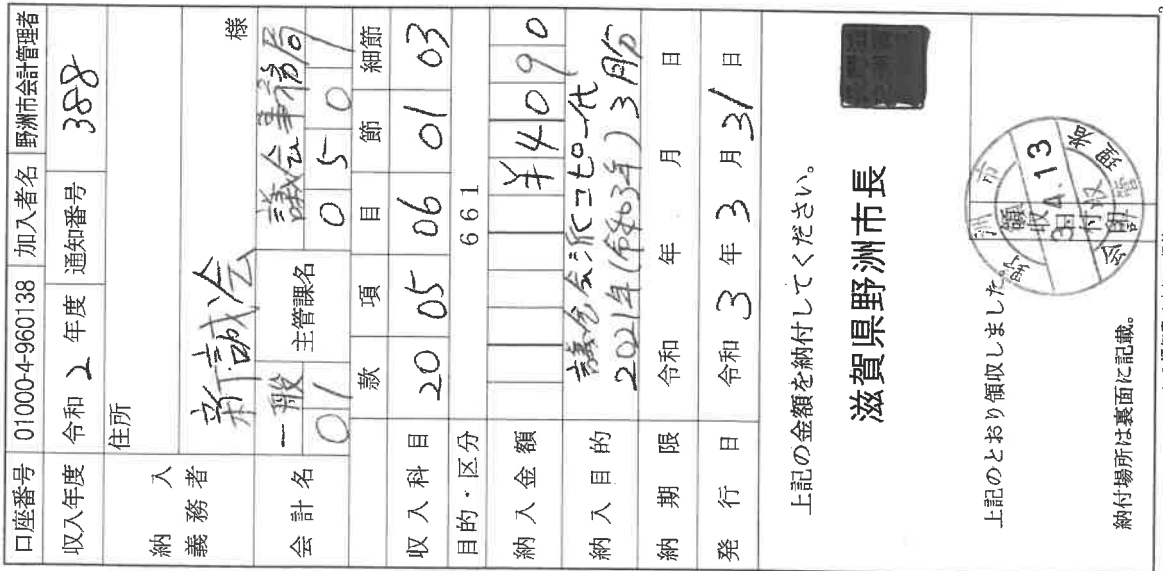 口座番号 01000-4-960138 加入者名 野洲市会計管理者
収入年度 令和 2 年度 通知番号 388
納入義務者 住所
新誠会 様
会計名 一般 主管課名 議会事務局
01 0501
収入科目 款 項 目 節 細節
20 05 06 01 03
目的・区分 661
納入金額 ¥4090
納入目的 議会会派コピー代
2021年(令和3年)3月分
納期限 令和 年 月 日
発行日 令和 3 年 3 月 31 日
上記の金額を納付してください。
滋賀県野洲市長
上記のとおり領収しました。
野洲市
領収
3.4.13
納付場所は裏面に記載。